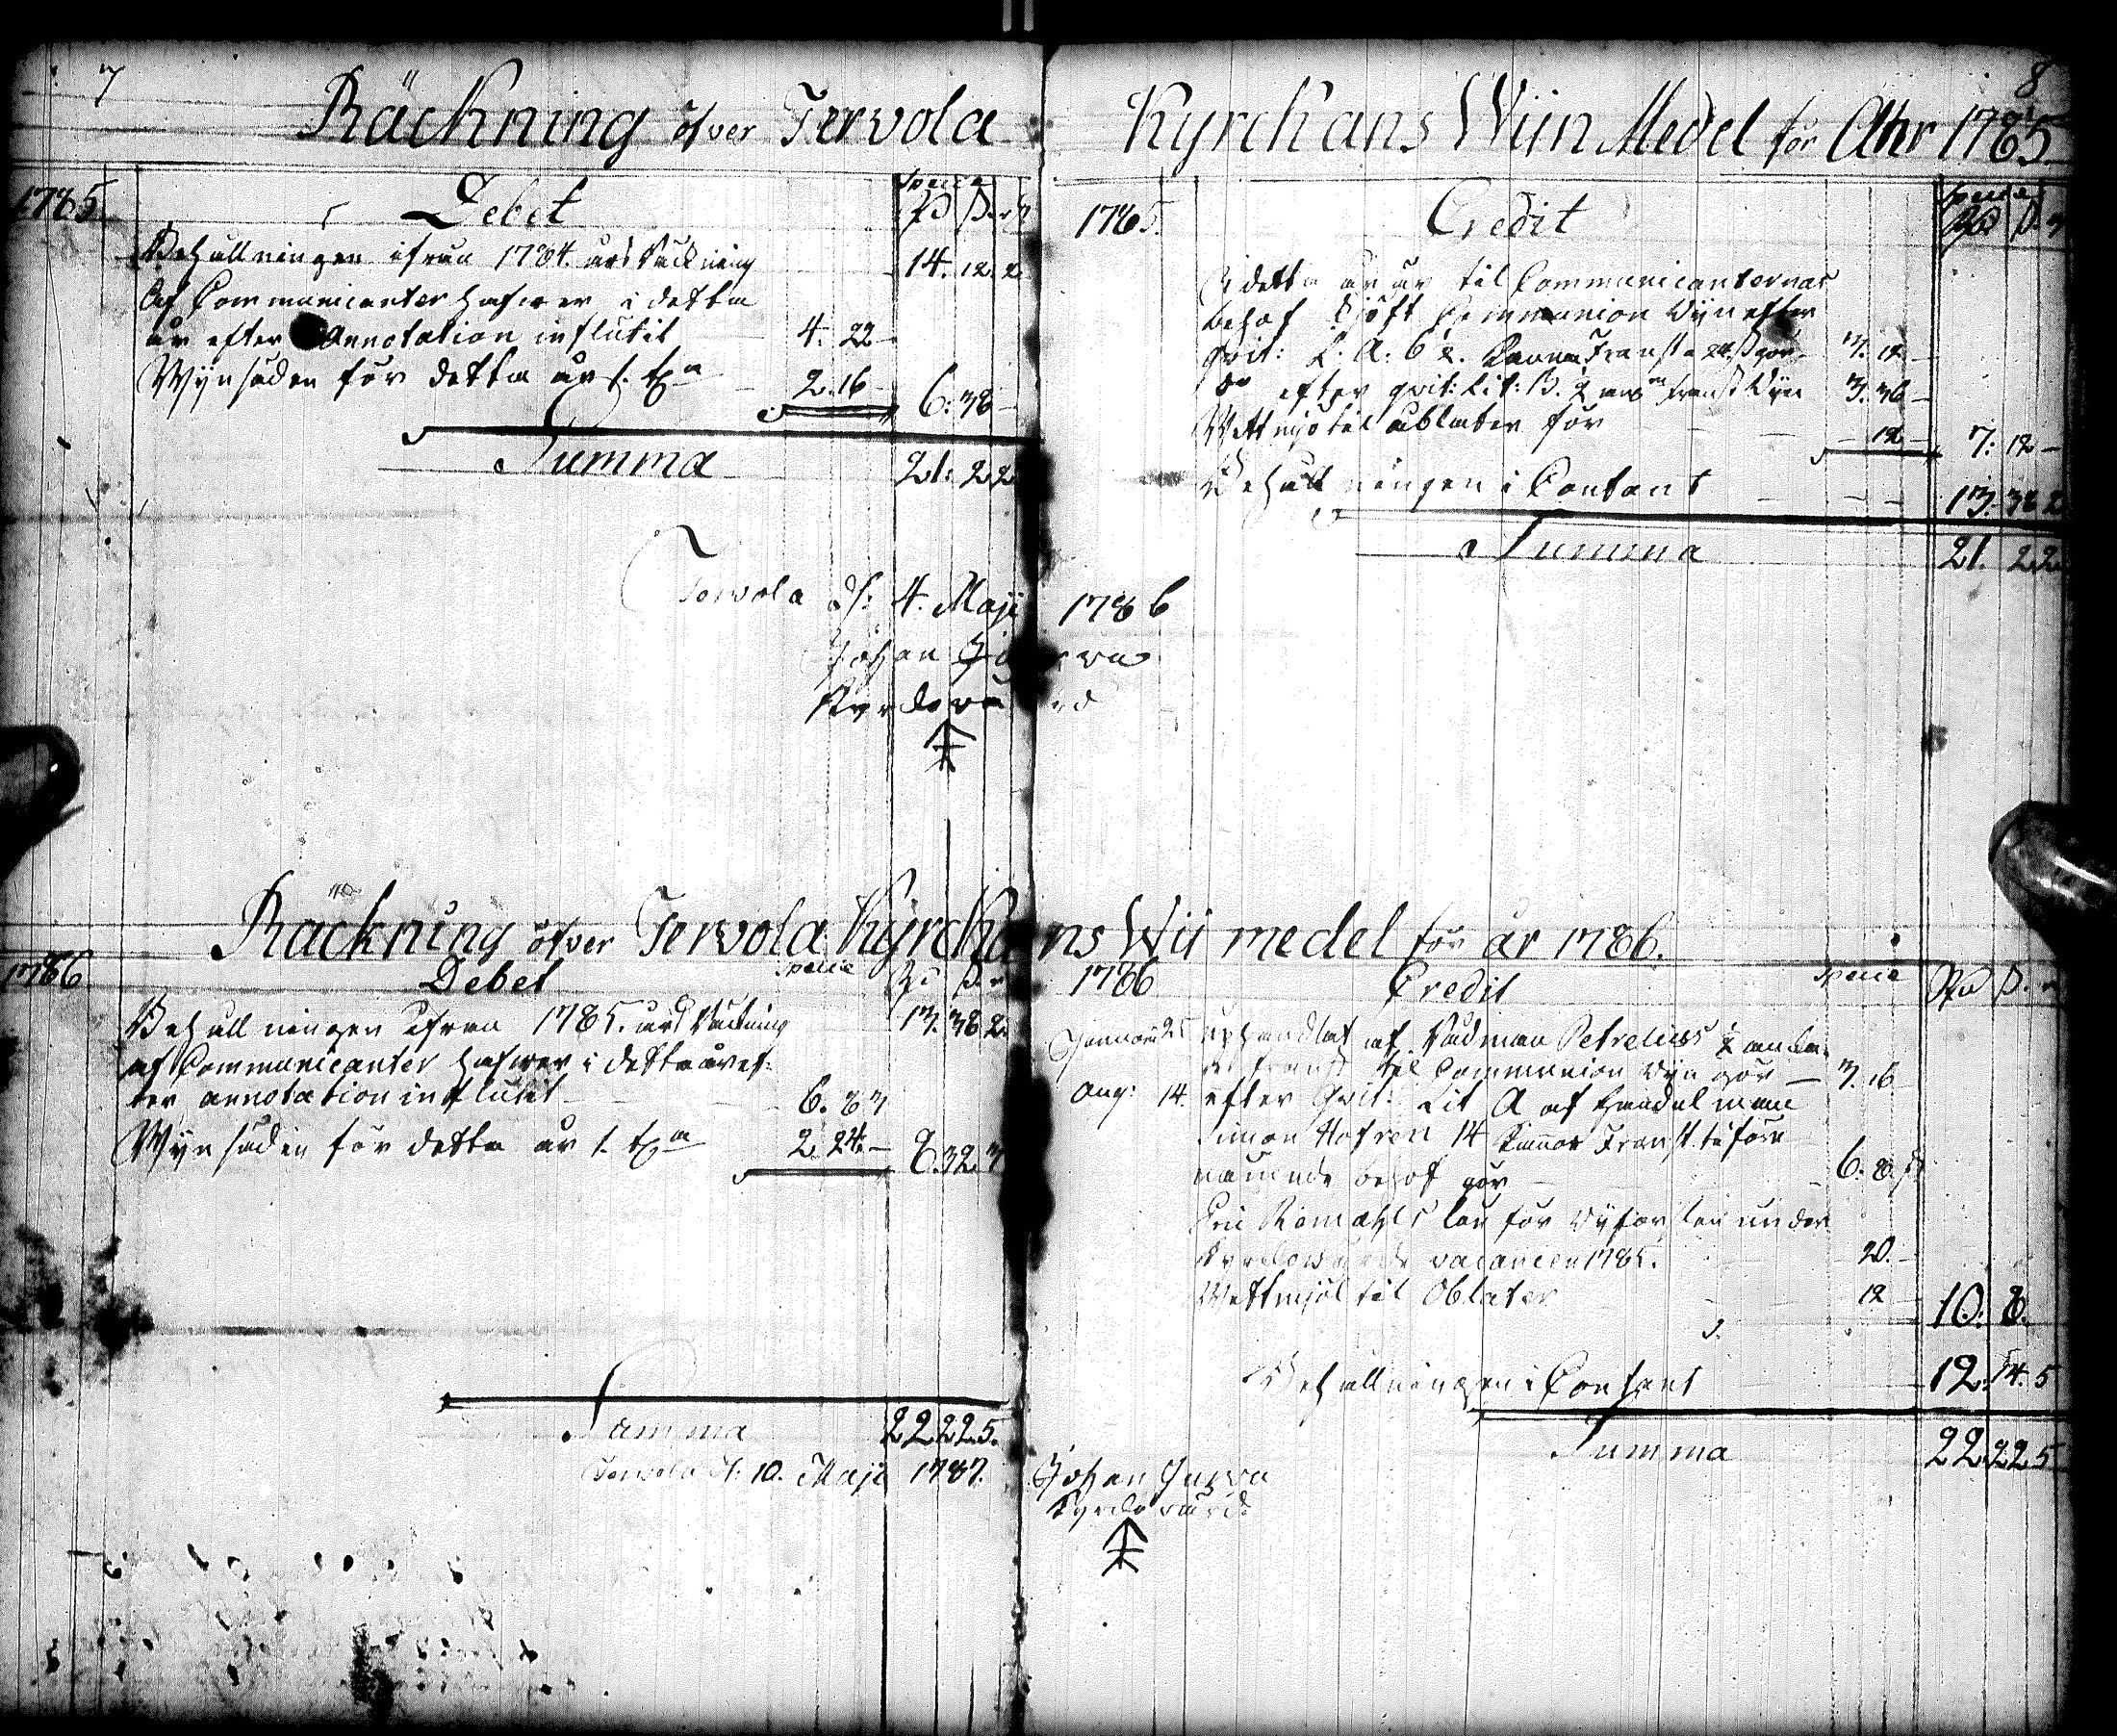 7
8
Räckning öfver Tervola Kyrckans Wiin Medel för Åhr 1785.
1785.
Debet
Specie
Rd ß. r
Behållningen ifrån 1784. års Räckning 14. 12. 2.
Af Communicanter hafwer i detta
år efter Annotation influtit 4. 22
Wynsäden för detta år 2. 16 6. 38
Summa 21. 2. 2
1785.
Credit
Specie
Rd ß. r
I detta år är til Communicanternas
behof kjöft Communion Wijn efter
Qvit: L. A. 6 2. Kannor Franskt a 24 ß gör 3. 12
Do efter qvit: Lit: B. ½ Franskt Wijn 3. 36
Hvettmjöl til Oblater för 12 7. 12
Behållningen i Contant 13. 38 2
Summa 21. 2. 2
Tervola d: 4. Maji 1786
Johan
Kyrckovärd
Räckning öfver Tervola Kyrckans Wii medel för år 1786.
1786.
Debet
Specie
Rd ß. r
Behållningen ifrån 1785. års Räckning 13. 38 2.
af Communicanter hafwer i detta år ef-
ter annotation influtit 6. 8 3
Wynsäden för detta år 2. 24 8. 32. 3
Summa 22 22 5.
1786
Credit
Specie
Rd ß. r
Januarii 25 uphandlat af Rådman Petrelius ½ anka-
re franskt til Communion Wijn gör 3. 16
Aug: 14. efter Qvit: Lit A af Handelsman
Simon Hofren 14 Kannor Franskt til före
nämnde behof gör 6. 8.
Eric lön för under
Kyrckowärds vacancen 1785. 20.
Hvettmjöl til Oblater 12 10. 8.
Behållningen i Contant 12. 14. 5
Summa 22 22 5
Tervola d: 10. Maji 1787. Johan
Kyrckovärd